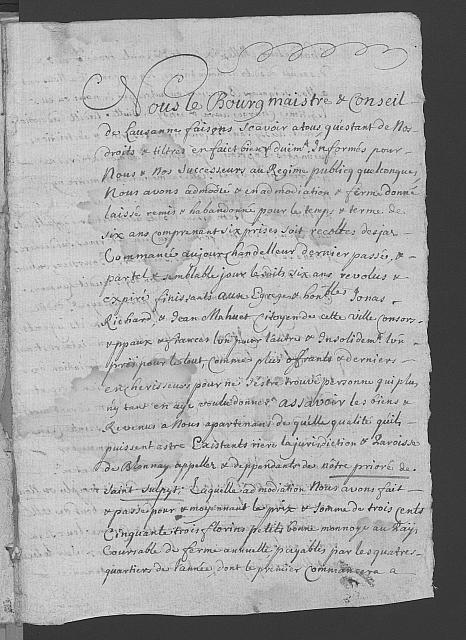 Nous le Bourgmaistre & Conseil
de Lausanne faisons scavoir a tous qu'estant de Nos
droits & tiltres en faict bien & duim.t Informés pour
Nous & Nos Successeurs au Regime publicq quelconques
Nous avons admodié & en admodiation & ferme donné
laissé remis & habandonné pour le temps & terme de
six ans comprenant six prises soit recoltes desja
Commancé au jour chandelleur dernier passée, &
par tel & semblable jour lesdits six ans revolus &
expiré finissants aux Egrege & hon.bles Jonas
Richard & Jean Mahuet Citoyen de cette ville consors
lun pour lautre & Insolidem.t lun
pris pour le tout, Comme plus offrants & derniers
encherisseurs pour ne s'estre trouvé personne qui plus
ny tant en aye voulu donner assavoir les biens &
Revenus a Nous apartenans de quelle qualité quils
puissent estre Existants riere la jurisdiction & Paroisse
de Blonnay appellez & deppendants de nôtre prioré de
Saint Sulpy, Laquelle admodiation Nous avons fait
& passé pour & moyennant le prix & somme de trois cents
Cinquante trois florins petits bonne monnoye au Pays
Coursable de ferme annuelle, payables par les quatres
quartiers de l'année dont le premier commancera a